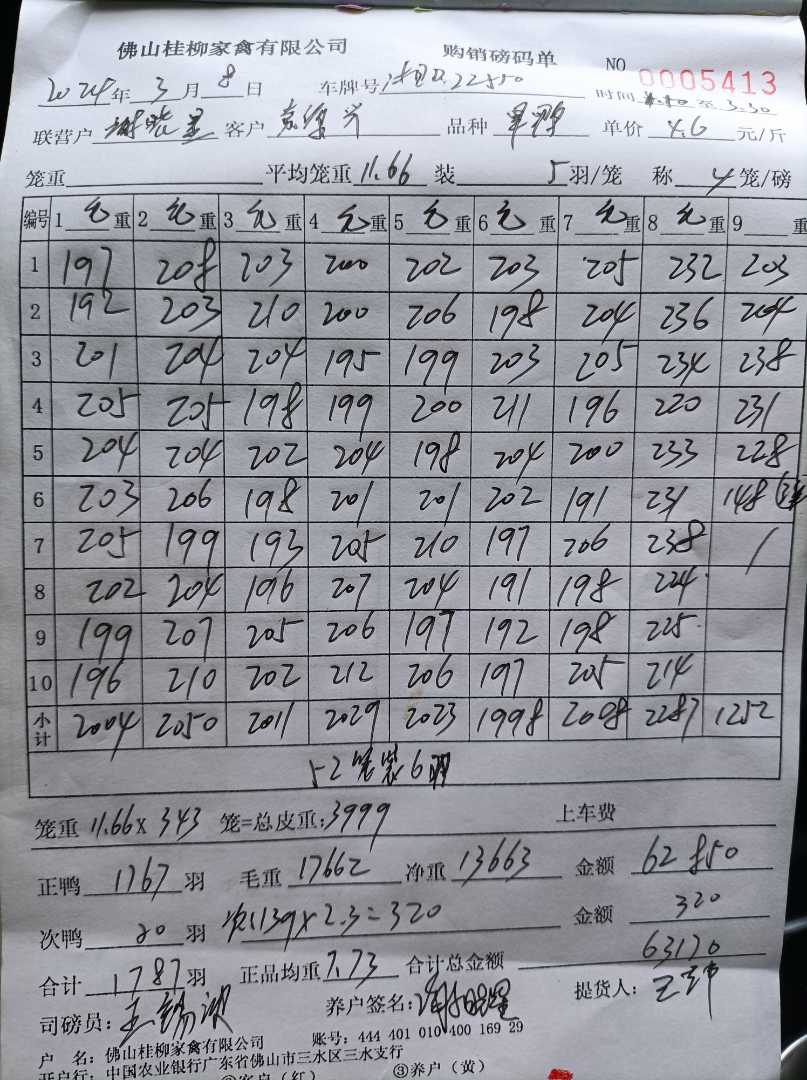 佛山桂柳家禽有限公司 购销磅码单 NO 0005413
2024年 3 月 8 日 车牌号 22850 时间 至 3.30
联营户 谢晓星 客户 品种 单价 4.6 元/斤
笼重 平均笼重 11.66 装 5 羽/笼 称 4 笼/磅
编号 1 毛 重 2 毛 重 3 毛 重 4 毛 重 5 毛 重 6 毛 重 7 毛 重 8 毛 重 9 重
1 197 208 203 200 202 203 205 232 203
2 192 203 210 200 206 198 204 236 204
3 201 204 204 195 199 203 205 234 238
4 205 205 198 199 200 211 196 220 231
5 204 204 202 204 198 204 200 233 228
6 203 206 198 201 201 202 191 231 148
7 205 199 193 205 210 197 206 238 /
8 202 204 196 207 204 191 198 224
9 199 207 205 206 197 192 198 225
10 196 210 202 212 206 197 205 214
小计 2004 2050 2011 2029 2023 1998 2008 2287 1252
52笼装6羽
笼重 11.66 × 343 笼=总皮重: 3999 上车费
正鸭 1767 羽 毛重 17662 净重 13663 金额 62850
次鸭 20 羽 139×2.3=320 金额 320
合计 1787 羽 正品均重 7.73 合计总金额 63170
司磅员: 王锡洪 养户签名: 谢晓星 提货人:
户 名: 佛山桂柳家禽有限公司 账号: 444 401 010 400 169 29
开户行: 中国农业银行广东省佛山市三水区三水支行
②客户（红） ③养户（黄）